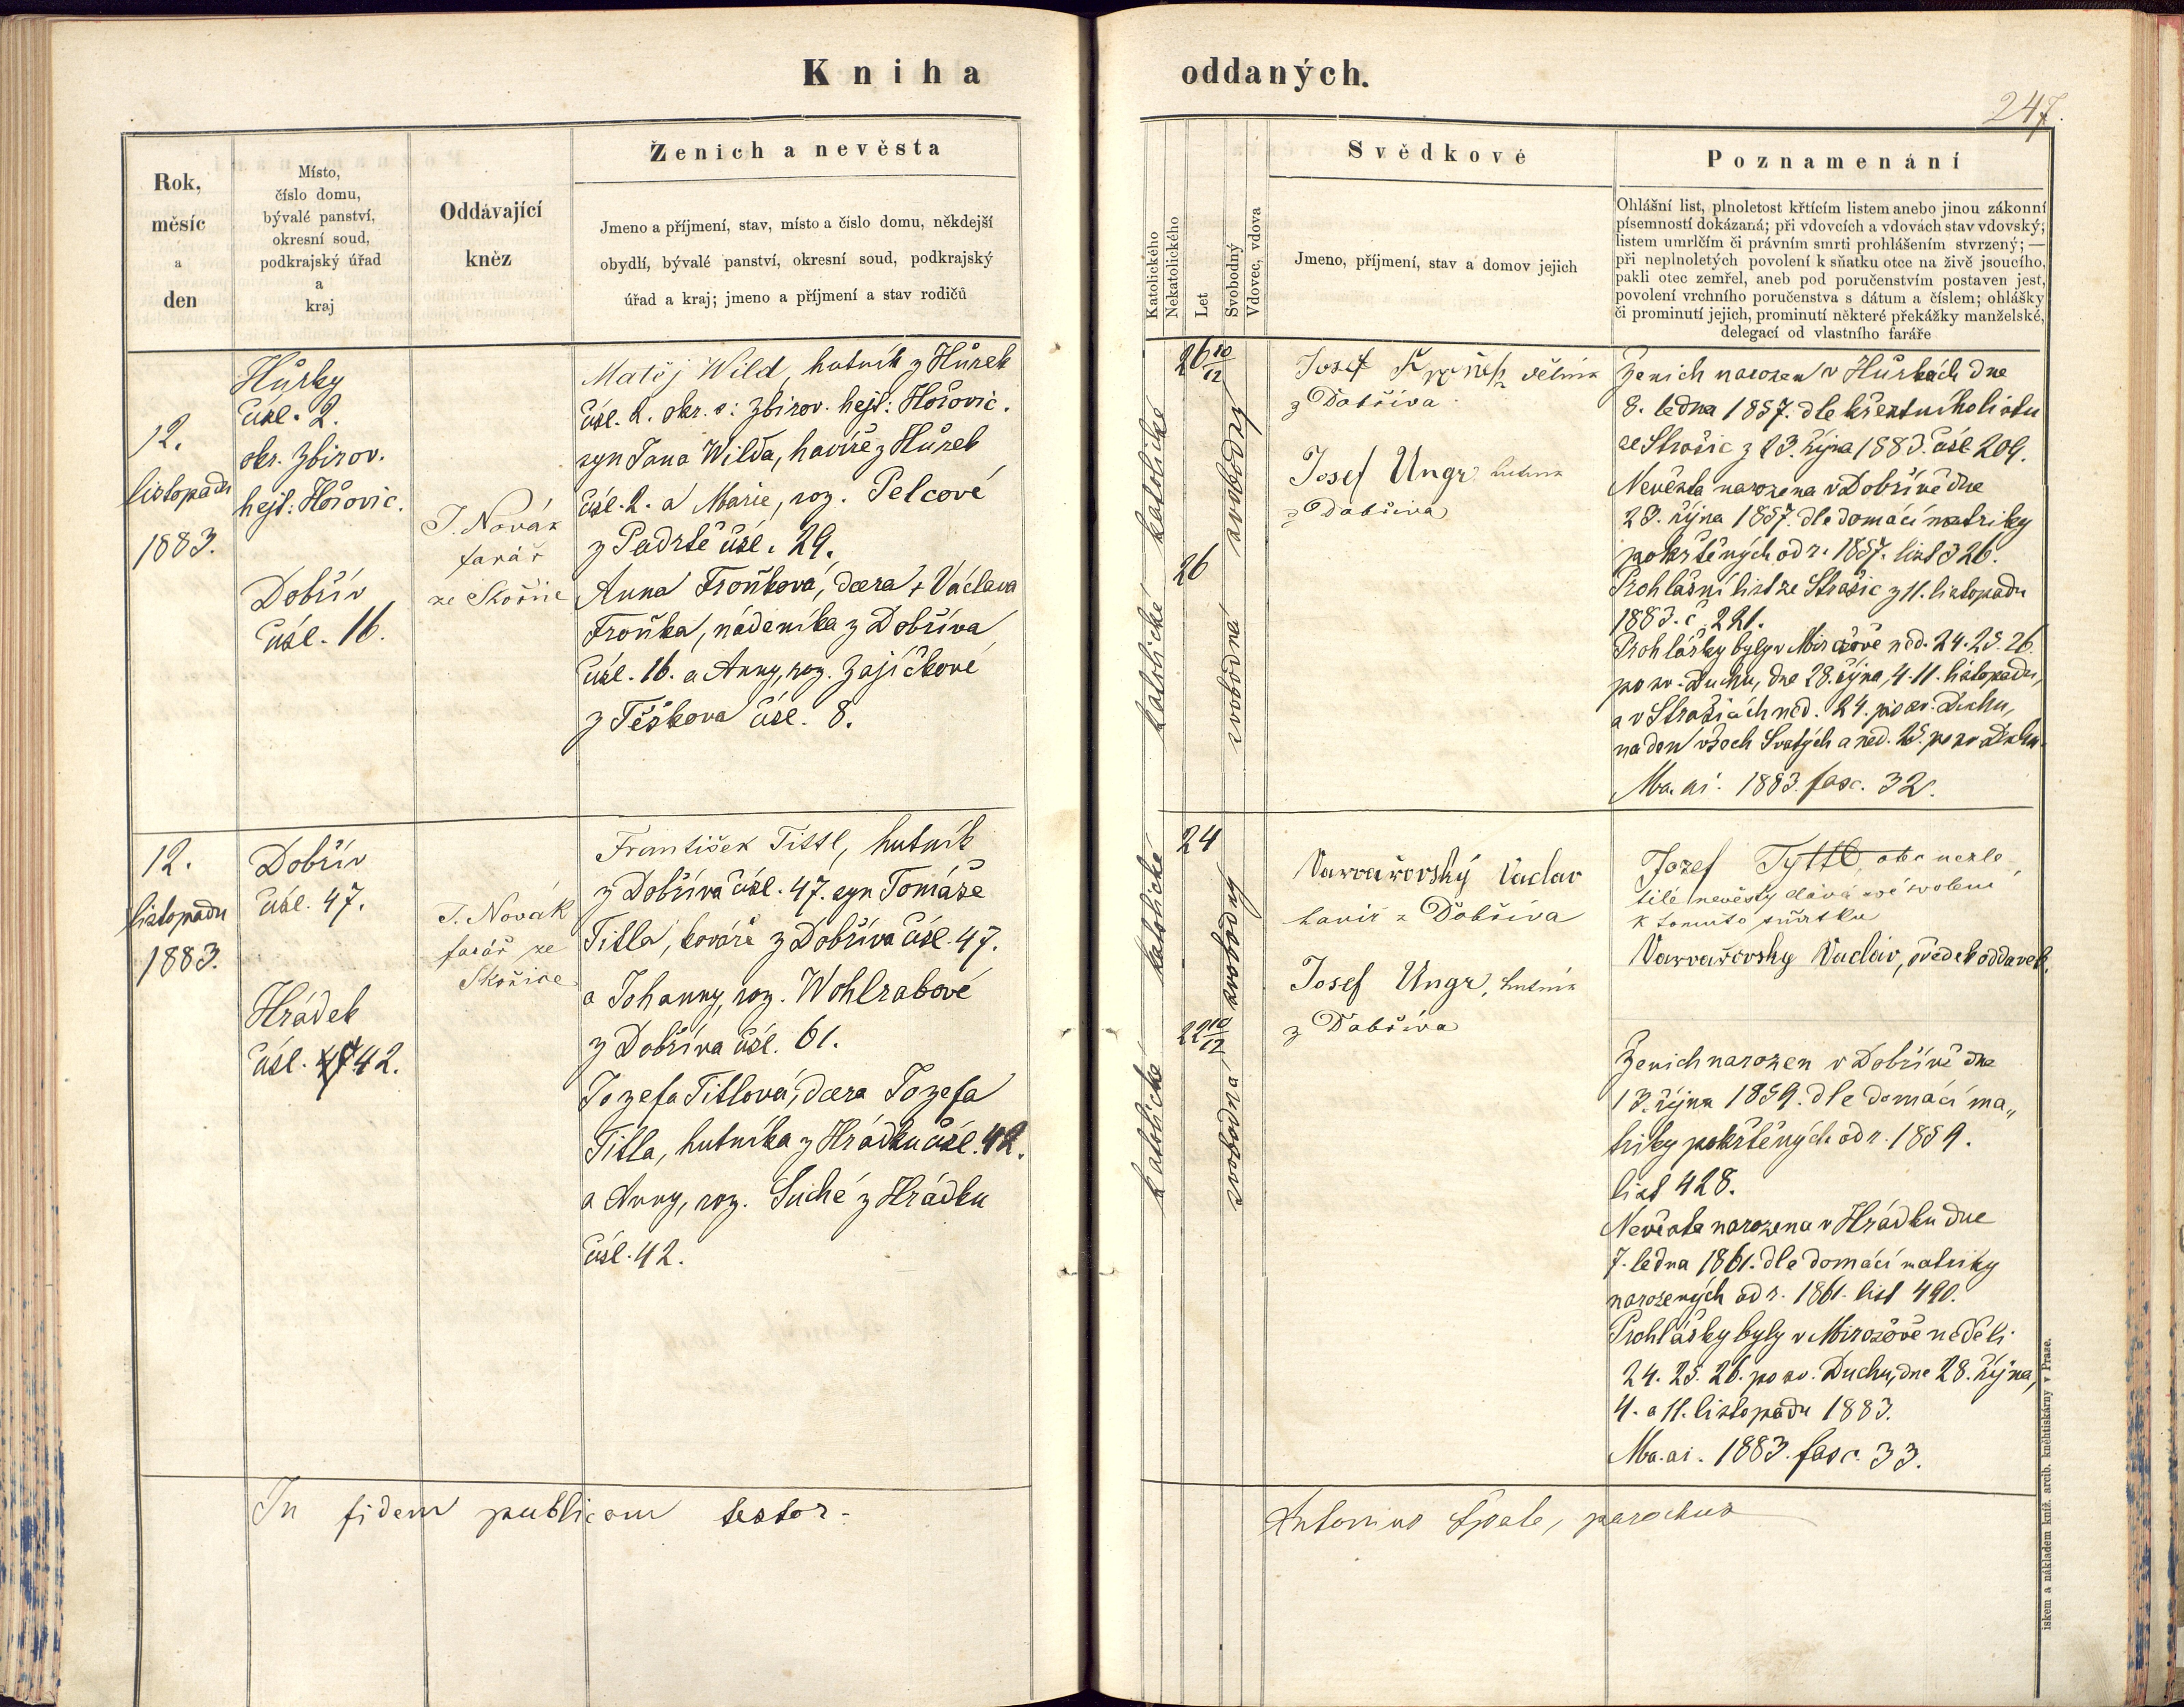 Kniha oddaných.
247.
Rok,
měsíc
a
den
Místo,
číslo domu,
bývalé panství,
okresní soud,
podkrajský úřad
a
kraj
Oddávající
kněz
Ženich a nevěsta
Jmeno a příjmení, stav, místo a číslo domu, někdejší
obydlí, bývalé panství, okresní soud, podkrajský
úřad a kraj; jmeno a příjmení a stav rodičů
Katolického
Nekatolického
Let
Svobodný
Vdovec, vdova
Svědkové
Jmeno, příjmení, stav a domov jejich
Poznamenání
Ohlášní list, plnoletost křtícím listem anebo jinou zákonní
písemností dokázaná; při vdovcích a vdovách stav vdovský;
listem umrlčím či právním smrti prohlášením stvrzený; —
při neplnoletých povolení k sňatku otce na živě jsoucího,
pakli otec zemřel, aneb pod poručenstvím postaven jest,
povolení vrchního poručenstva s dátum a číslem; ohlášky
či prominutí jejich, prominutí některé překážky manželské,
delegací od vlastního faráře
12.
listopadu
1883.
Hůrky
čísl. 2.
okr. Zbirov.
hejt: Hořovic.
Dobřív
čísl. 16.
J. Novák
farář
ze Skořic
Matěj Wild, hutník z Hůrek
čísl. 2. okr. s: Zbirov. hejt: Hořovic.
syn Jana Wilda, havíře z Hůrek
čísl. 2. a Marie, roz. Pelcové
z Padrtě čísl. 29.
Anna Froňková, dcera + Václava
Froňka, nádeníka z Dobříva
čísl. 16. a Anny, roz. Zajíčkové
z Těškova čísl. 8.
katolické
katolické
26 10/12
26
svobodný
svobodná
Josef
z Dobříva
Josef Ungr hutník
z Dobříva
Ženich narozen v Hůrkách dne
8. ledna 1857. dle křestního listu
ze Strašic z 23. října 1883. čísl. 209.
Nevěsta narozena v Dobřívě dne
23. října 1857. dle domácí matriky
pokřtěných od r. 1857. list 326.
Prohlášní list ze Strašic z 11. listopadu
1883. č. 221.
Prohlášky byly v Mirošově ned. 24. 25. 26.
po sv. Duchu, dne 28. října, 4. 11. listopadu,
a v Strašicích ned. 24. po sv. Duchu,
na den všech Svatých a ned. 25. po sv Duchu.
Ma. ai. 1883. fasc. 32.
12.
listopadu
1883.
Dobřív
čísl. 47.
Hrádek
čísl. 47 42.
J. Novák
farář ze
Skořice
František Tittl, hutník
z Dobříva čísl. 47. syn Tomáše
Titla, kováře z Dobříva čísl. 47.
a Johanny, roz. Wohlrabové
z Dobříva čísl. 61.
Jozefa Titlová, dcera Jozefa
Titla, hutníka z Hrádku čísl. 42.
a Anny, roz. Suché z Hrádku
čísl. 42.
katolické
katolické
24
22 10/12
svobodný
svobodná
Vavrařovský Vaclav
havíř z Dobříva
Josef Ungr, hutník
z Dobříva
Jozef Tyttl, otec nezle
tilé nevěsty dává své svolení
k tomuto sňatku
Vavrařovsky Vaclav, svědek oddavek.
Ženich narozen v Dobřívě dne
13. října 1859. dle domácí ma„
triky pokřtěných od r. 1859.
list 428.
Nevěsta narozena v Hrádku dne
7. ledna 1861. dle domácí matriky
narozených od r. 1861. list 490.
Prohlášky byly v Mirošově neděli
24. 25. 26. po sv. Duchu, dne 28. října,
4. a 11. listopadu 1883.
Ma. ai. 1883. fasc. 33.
In fidem publicam testor.
Antonius, parochus
iskem a nákladem kníž. arcib. knihtiskárny v Praze.